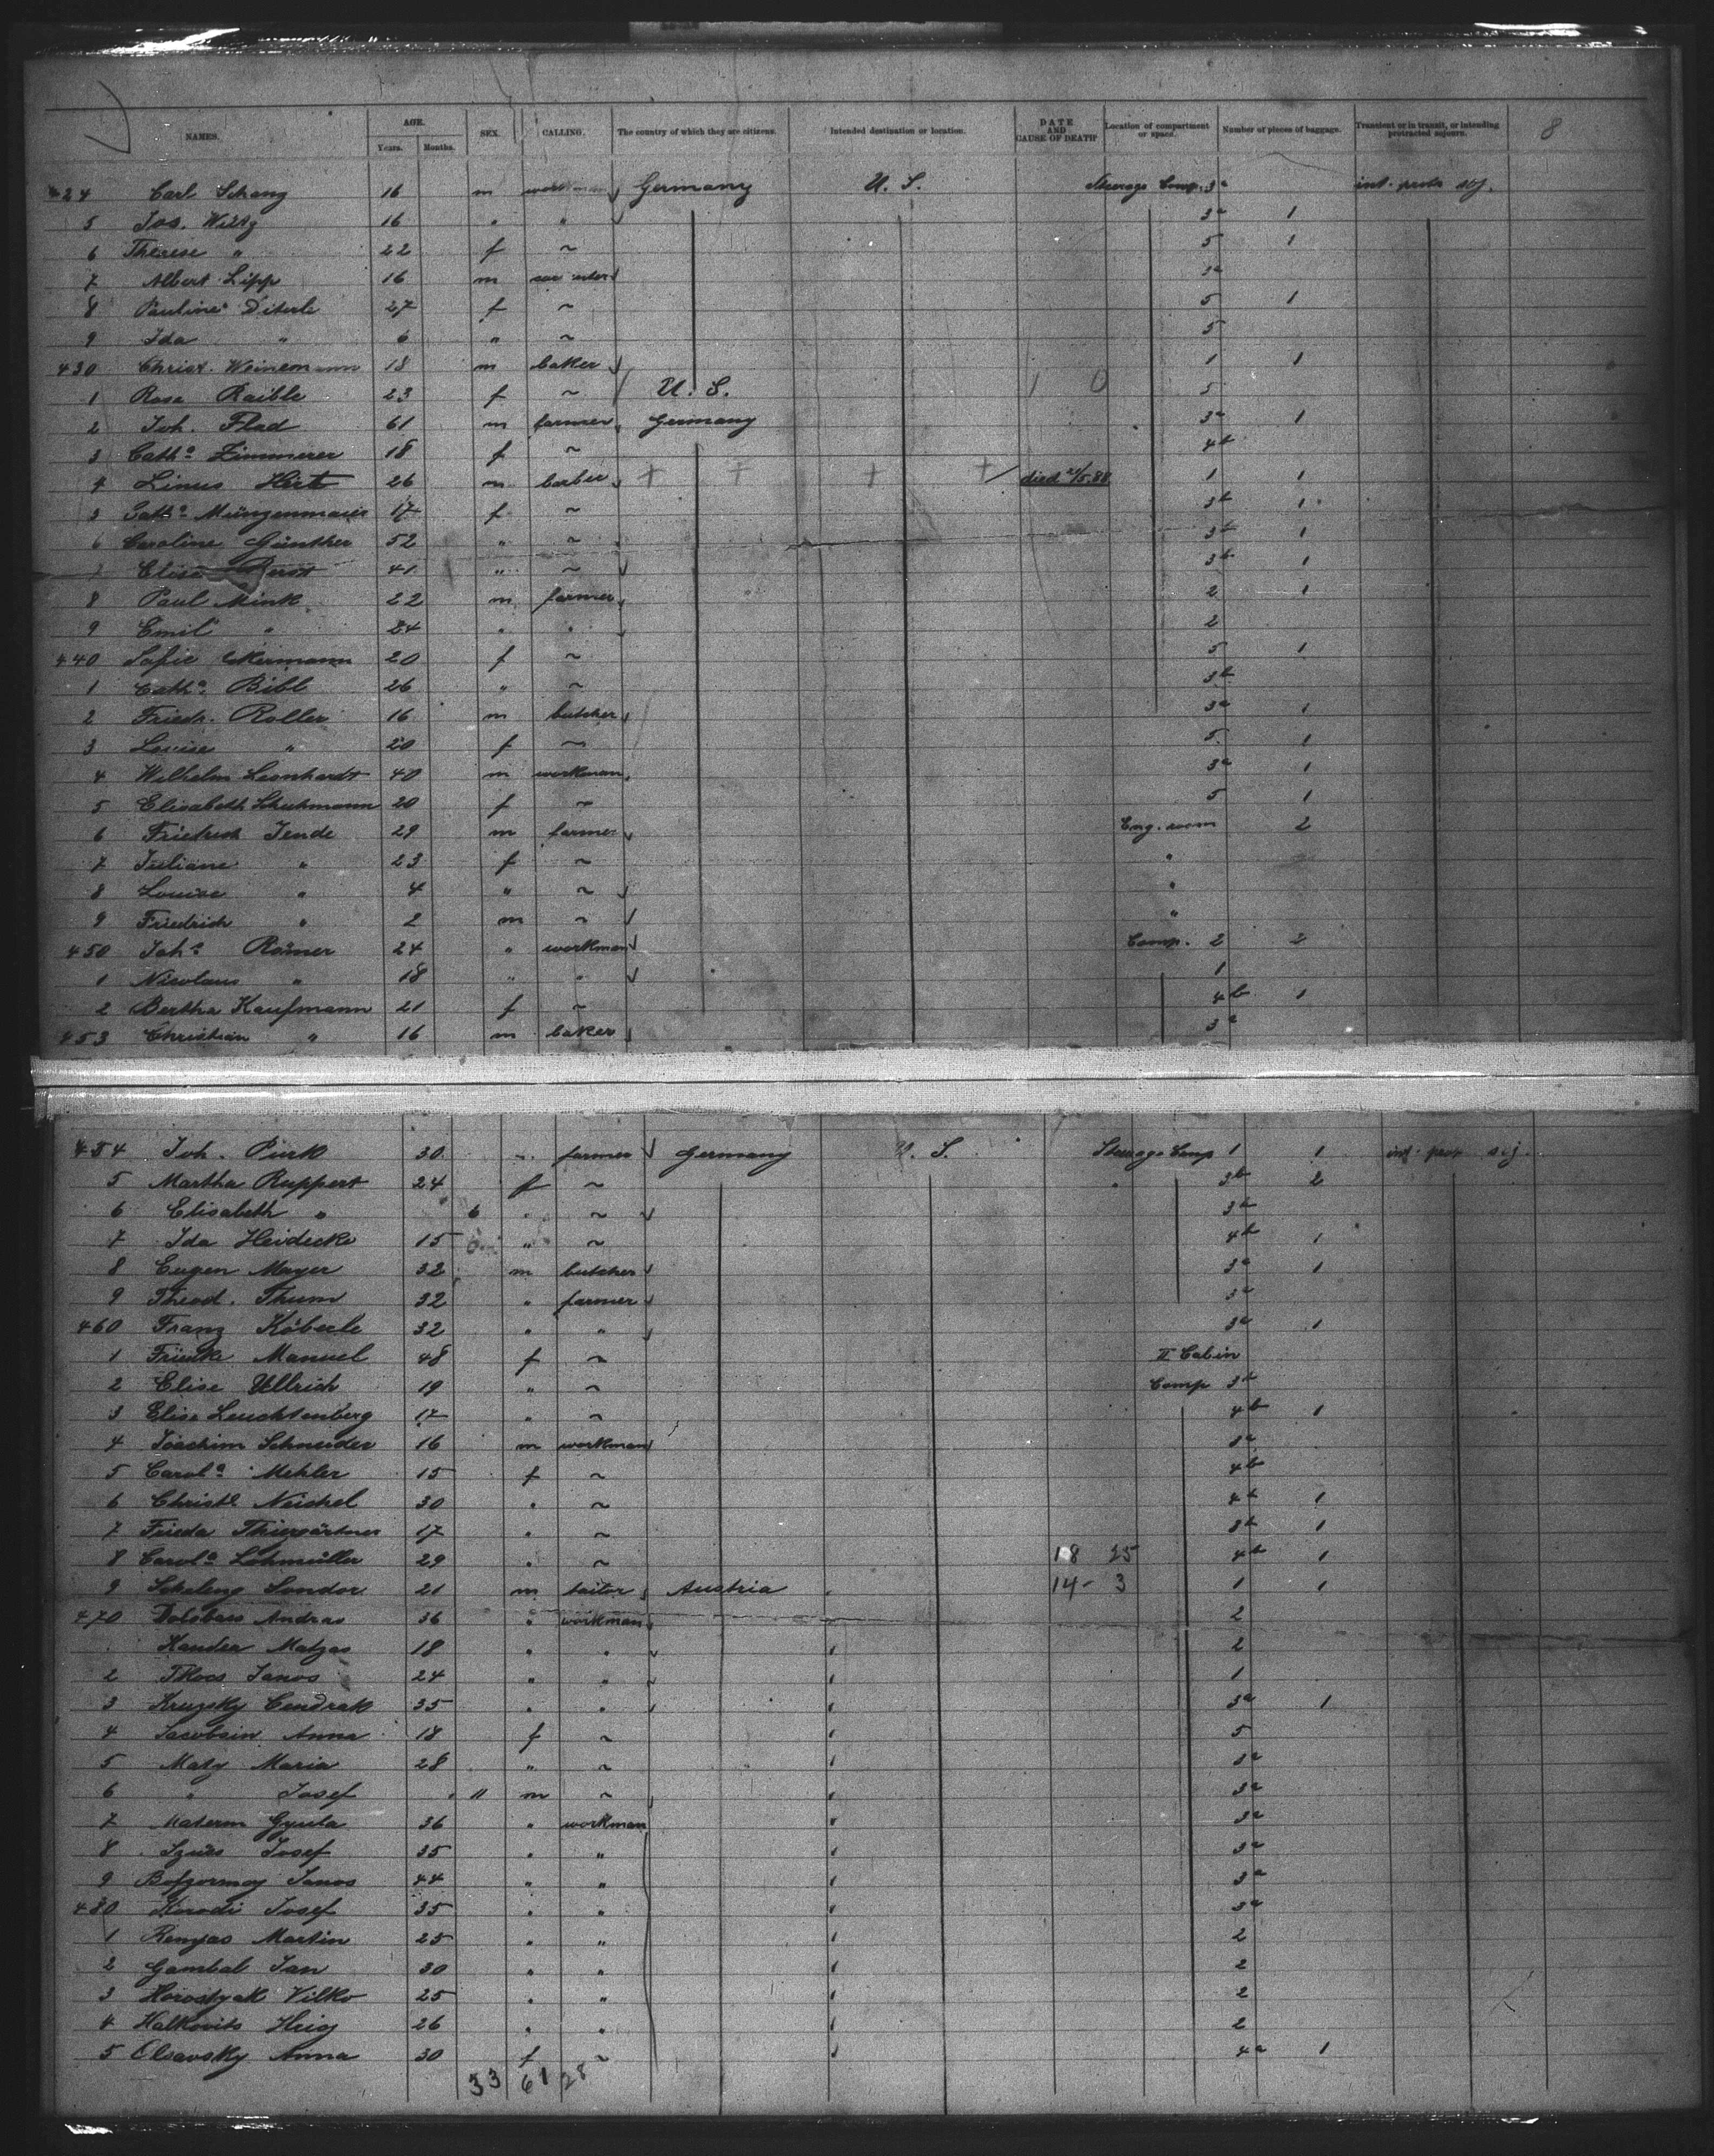 8
NAMES. AGE. Years. Months. SEX. CALLING. The country of which they are citizens. Intended destination or location. DATE AND CAUSE OF DEATH Location of compartment or space. Number of pieces of baggage. Transient or in transit, or intending protracted sejourn.
424 Carl Schang 16 m workman Germany U. S. Steerage Comp. 3a int. protr. sej.
5 Jos. Wiltz 16 " " 3a 1
6 Therese " 22 f ~ 5 1
7 Albert Lipp 16 m 3a
8 Pauline Diterle 27 f ~ 5 1
9 Ida " 6 " ~ 5
430 Christ. Weinemann 18 m baker 1 1
1 Rosa Raible 23 f ~ U. S. 1 0 5
2 Joh. Flad 61 m farmer Germany 3a 1
3 Catha Zimmerer 18 f ~ 4b
4 Linus Hirt 26 m barber + + + + died 21/5.88 1 1
5 Catha Münzenmaier 17 f ~ 3b 1
6 Caroline Günther 52 " ~ 3b 1
7 Elise 41 " ~ 3b 1
8 Paul Mink 22 m farmer 2 1
9 Emil " 24 " " 2
440 Sofie Akermann 20 f ~ 5 1
1 Catha Bibl 26 " ~ 3b
2 Friedr. Roller 16 m butcher 3a 1
3 Louise " 20 f ~ 5 1
4 Wilhelm Leonhardt 40 m workman 3a 1
5 Elisabeth Schuhmann 20 f ~ 5 1
6 Friedrich Jende 29 m farmer Eng. room 2
7 Juliane " 23 f ~ "
8 Louise " 4 " ~ "
9 Friedrich " 2 m ~ "
450 Joha Römer 24 " workman Comp. 2 2
1 Nicolaus " 18 " " 1
2 Bertha Kaufmann 21 f ~ 4b 1
453 Christian " 16 m baker 3a
454 Joh. Purk 30 " farmer Germany U. S. Steerage Comp 1 1 int. prot. sej.
5 Martha Ruppert 24 f ~ 3b 2
6 Elisabeth " 6 " ~ 3b
7 Ida Heidecke 15 " ~ 4b 1
8 Eugen Mayer 32 m butcher 3a 1
9 Theod. Thum 32 " farmer 3a
460 Franz Köberle 32 " " 3a 1
1 Manuel 48 f ~ II Cabin
2 Elise Ullrich 19 " ~ Comp 3b
3 Elise Leuchtenberg 17 " ~ 4b 1
4 Joachim Schneider 16 m workman 3a
5 Carola Mehler 15 f ~ 4b
6 Christe Neichel 30 " ~ 4b 1
7 Frieda Thiergärtner 17 " ~ 3b 1
8 Carola Lohmüller 29 " ~ 18 25 4b 1
9 Schaleng Sandor 21 m tailor Austria 14- 3 1 1
470 Andras 36 " workman 2
Kander Matyas 18 " " 2
2 Janos 24 " " 1
3 Kruzsky Cendrak 35 " " 3a 1
4 Jacobsin Anna 18 f ~ 5
5 Maly Maria 28 " ~ 3a
6 " Josef 11 m ~ 3a
7 Materm Gyula 36 " workman 3a
8 Szücs Josef 35 " " 3a
9 Janos 44 " " 3a
480 Korodi Josef 35 " " 3a
1 Renyas Martin 25 " " 2
2 Gambal Jan 30 " " 2
3 Vilko 25 " " 2
4 Halkovits 26 " " 2
5 Olsavsky Anna 30 f ~ 4a 1
33 61 28